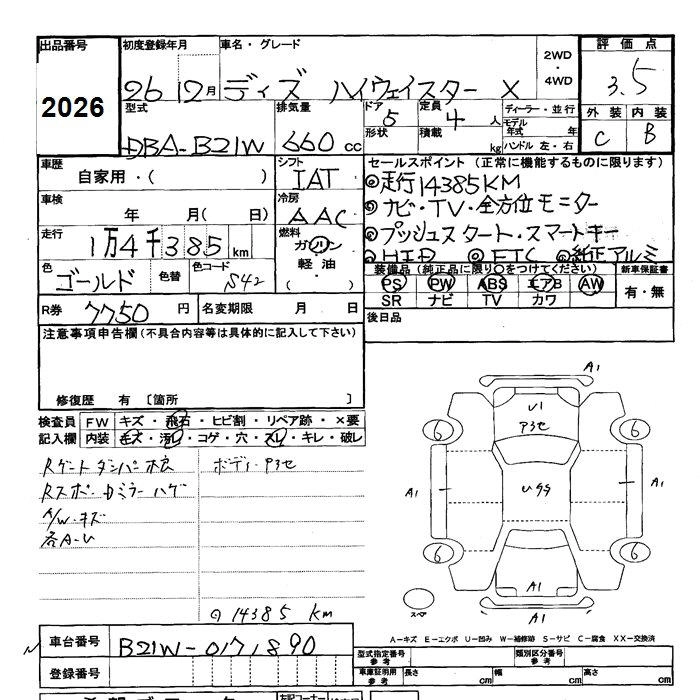 出品番号 初度登録年月 車名・グレード 2WD・4WD 評価点
2026 26 12月 デイズ ハイウェイスター X 3.5
型式 排気量 ドア 定員 ディーラー・並行 外装 内装
DBA-B21W 660 cc 5 4人 モデル年式 年 C B
形状 積載 kg ハンドル 左・右
車歴 シフト セールスポイント (正常に機能するものに限ります)
自家用・( ) IAT ◎走行14385KM
車検 冷房 ◎ナビ・TV・全方位モニター
年 月( 日) AAC ◎プッシュスタート・スマートキー
走行 燃料 ◎HID ◎ETC ◎純正アルミ
1万4千385km ガソリン
色 色替 色コード 軽・油 装備品 (純正品に限り○をつけてください) 新車保証書
ゴールド S42 ( ) PS PW ABS エアB AW 有・無
SR ナビ TV カワ
R券 7750円 名変期限 月 日 後日品
注意事項申告欄(不具合内容等は具体的に記入して下さい)
修復歴 有 〔箇所 〕
検査員記入欄 FW キズ・飛石・ヒビ割・リペア跡・×要
内装 キズ・汚れ・コゲ・穴・スレ・キレ・破レ
Rゲートダンパー ボディ・
Rスポ・ミラーハゲ
A/W・キズ
各A-U
◎14385 km
A1
U1
6 6
A1 A1
6 6
A1
A1
スペア
A-キズ E-エクボ U-凹み W-補修跡 S-サビ C-腐食 XX-交換済
車台番号 B21W-0171890
型式指定番号 参考 類別区分番号 参考
登録番号
車庫証明用 参考 長さ cm 幅 cm 高さ cm